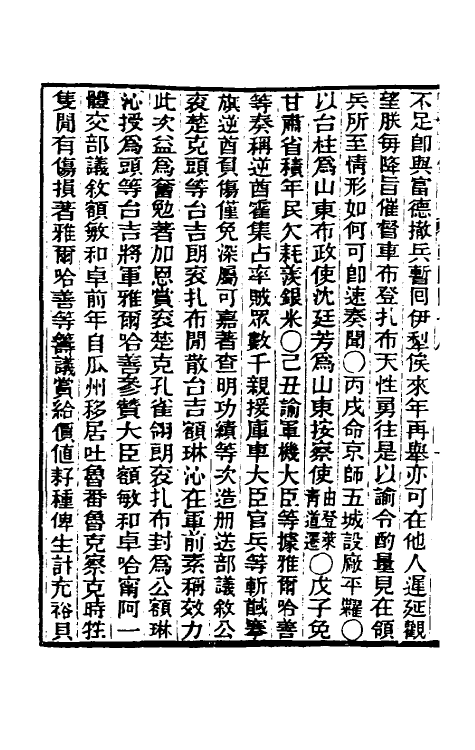 不足卽與富德撤兵暫囘伊犁俟來年再舉亦可在他人遲延觀
望朕每降旨催督車布登扎布天性勇往是以諭令酌量見在領
兵所至情形如何可卽速奏聞〇丙戌命京師五城設廠平糶〇
以台柱爲山東布政使沈廷芳爲山東按察使由登萊青道遷〇戊子免
甘肅省積年民欠耗羨銀米〇己丑諭軍機大臣等據雅爾哈善
等奏稱逆酋霍集占率賊眾數千親援庫車大臣官兵等斬馘搴
旗逆酋負傷僅免深屬可嘉著查明功績等次造册送部議敘公
袞楚克頭等台吉朗袞扎布閒散台吉額琳沁在軍前素稱效力
此次益爲奮勉著加恩賞袞楚克孔雀翎朗袞扎布封爲公額琳
沁授爲頭等台吉將軍雅爾哈善參贊大臣額敏和卓哈甯阿一
體交部議敘額敏和卓前年自瓜州移居吐魯番魯克察克時牲
隻閒有傷損著雅爾哈善等籌議賞給價値耔種俾生計充裕貝